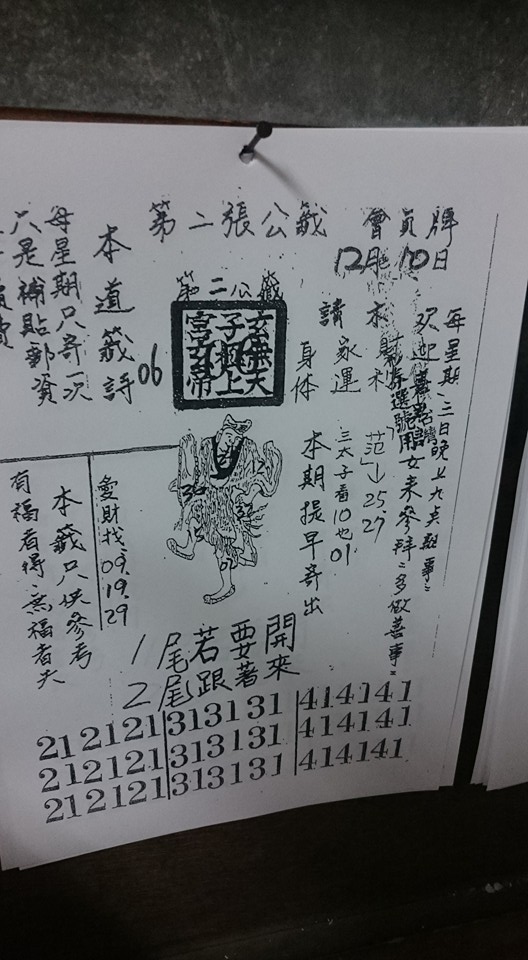 第二張公籤 會員牌
12月10日
每星期、三日晚上九点
善男信女來參拜、多做善事
彩券選號用
范↓25.27
求財
請求家運
身体
三太子看10也01
本期提早寄出
第二公籤
玄無大
子極上
宮玄帝
06
本道籤詩
每星期只寄一次
只是補貼郵資
12
32
愛財找、09.19.29
本籤只供參考
有福者得、無福者失
1尾若要開
2尾跟著來
212121 313131 414141
212121 313131 414141
212121 313131 414141